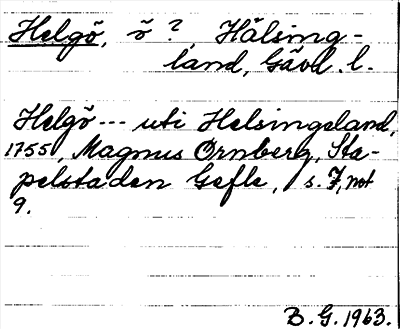 Helgö, ö ?, Hälsing-
land, Gävl. l.
Helgö --- uti Helsingeland,
1755, Magnus Ornberg, Sta-
pelstaden Gefle, s. 7, not
9.
B. G. 1963.